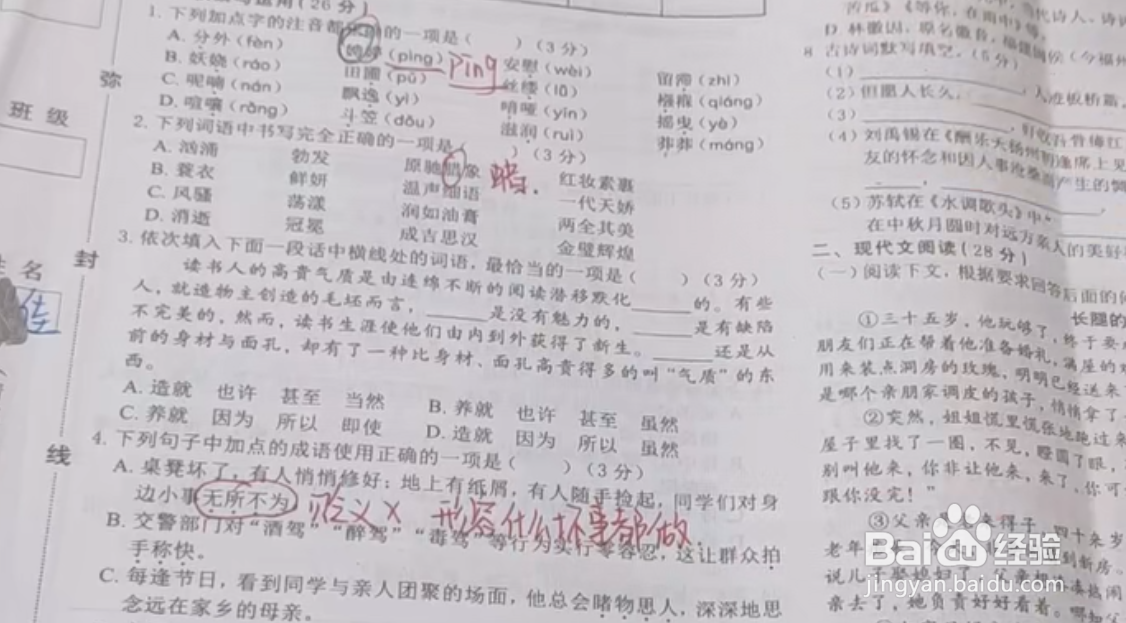 1. 下列加点字的注音都 的一项是( )(3分)
A. 分外(fèn) 娉婷(pìng) ping 安慰(wèi) 留滞(zhì)
B. 妖娆(ráo) 田圃(pǔ) 丝缕(lǚ) 襁褓(qiáng)
C. 呢喃(nán) 飘逸(yì) 喑哑(yīn) 摇曳(yè)
D. 喧嚷(rǎng) 斗笠(dǒu) 滋润(rùn) 莽莽(mǎng)
2. 下列词语中书写完全正确的一项是( )(3分)
A. 汹涌 勃发 原驰腊象 蜡. 红妆素裹
B. 蓑衣 鲜妍 温声细语 一代天娇
C. 风骚 荡漾 润如油膏 两全其美
D. 消逝 冠冕 成吉思汉 金璧辉煌
3. 依次填入下面一段话中横线处的词语，最恰当的一项是( )(3分)
读书人的高贵气质是由连绵不断的阅读潜移默化______的。有些
人，就造物主创造的毛坯而言，______是没有魅力的，______是有缺陷
不完美的，然而，读书生涯使他们由内到外获得了新生。______还是从
前的身材与面孔，却有了一种比身材、面孔高贵得多的叫“气质”的东
西。
A. 造就 也许 甚至 当然 B. 养就 也许 甚至 虽然
C. 养就 因为 所以 即使 D. 造就 因为 所以 虽然
4. 下列句子中加点的成语使用正确的一项是( )(3分)
A. 桌凳坏了，有人悄悄修好；地上有纸屑，有人随手捡起，同学们对身
边小事无所不为 贬义 × 形容什么坏事都做.
B. 交警部门对“酒驾”“醉驾”“毒驾”等行为实行零容忍，这让群众拍
手称快。
C. 每逢节日，看到同学与亲人团聚的场面，他总会睹物思人，深深地思
念远在家乡的母亲。
弥
班级
封
名
线
8 古诗词默写填空。(5分)
(1)____________，人迹板桥霜。
(2)但愿人长久，
(3)
(4)刘禹锡在《酬乐天扬州初逢席上见
友的怀念和因人事沧桑而产生的惆
(5)苏轼在《水调歌头》中“
在中秋月圆时对远方亲人的美好
二、现代文阅读(28分)
(一)阅读下文，根据要求回答后面的
①三十五岁，他玩够了，终于要
朋友们正在帮着他准备婚礼，满屋的
用来装点洞房的玫瑰，明明已经送来
是哪个亲朋家调皮的孩子，悄悄拿了
②突然，姐姐慌里慌张地跑过来
屋子里找了一圈，不见，瞪圆了眼，
别叫他来，你非让他来，来了，你可
跟你没完！”
③父亲 来得子
四十来岁
老年
到新房。
说儿
凑热闹
亲去了，她负责好好看着。
Baidu经验
jingyan.baidu.com